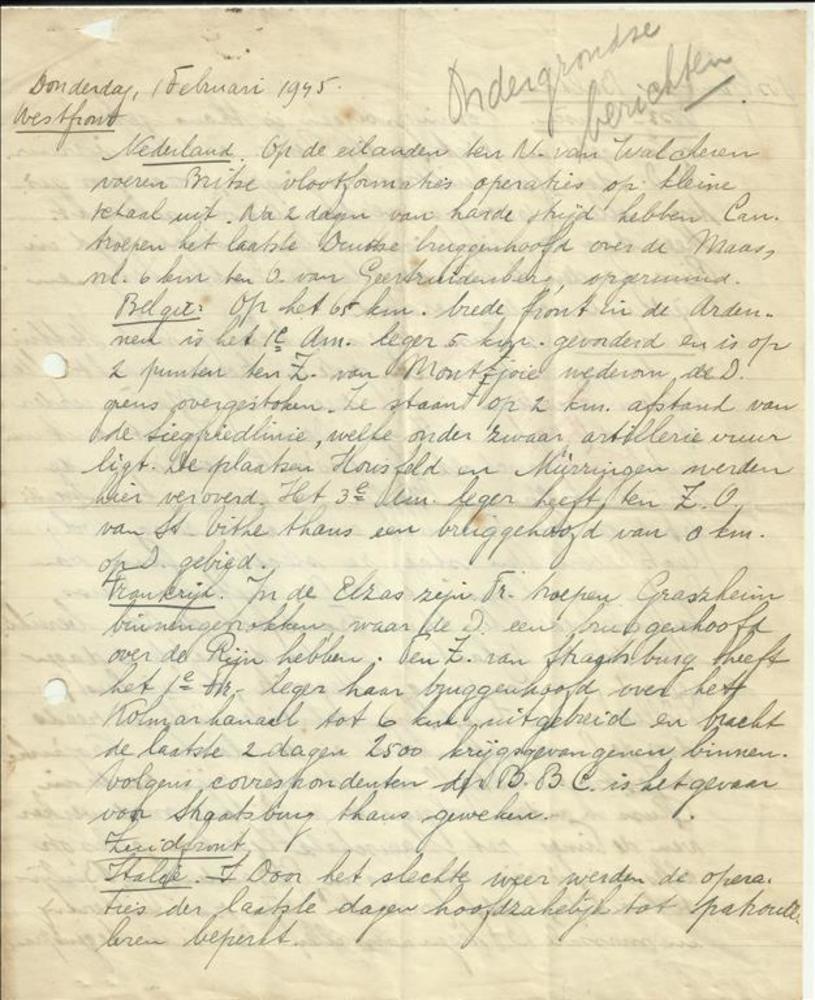 Ondergrondse
berichten
Donderdag, 1 Februari 1945.
Westfront
Nederland. Op de eilanden ten N. van Walcheren
voeren Britse vlootformaties operaties op kleine
schaal uit. Na 2 dagen van harde strijd hebben Can.
troepen het laatste Duitse bruggenhoofd over de Maas,
nl. 6 km ten O. van Geertruidenberg, opgeruimd.
België: Op het 65 km. brede front in de Arden-
nen is het 1e Am. leger 5 km. gevorderd en is op
2 punten ten Z. van Montjoie wederom de D.
grens overgestoken. Ze staan op 2 km. afstand van
de Siegfriedlinie, welke onder zwaar artillerie vuur
ligt. De plaatsen en Mürringen werden
hier veroverd. Het 3e Am. leger heeft ten Z.O.
van St. Vithe thans een bruggehoofd van km.
op D. gebied.
Frankrijk. In de Elzas zijn Fr. troepen Graszheim
binnengetrokken waar de D. een bruggenhoofd
over de Rijn hebben. Ten Z. van Straatsburg heeft
het 1e Fr. leger haar bruggenhoofd over het
Kolmarkanaal tot 6 km uitgebreid en bracht
de laatste 2 dagen 2500 krijgsgevangenen binnen.
Volgens correspondenten der B.B.C. is het gevaar
voor Straatsburg thans geweken.
Zuidfront
Italië. Door het slechte weer werden de opera-
ties der laatste dagen hoofdzakelijk tot patrouil-
leren beperkt.